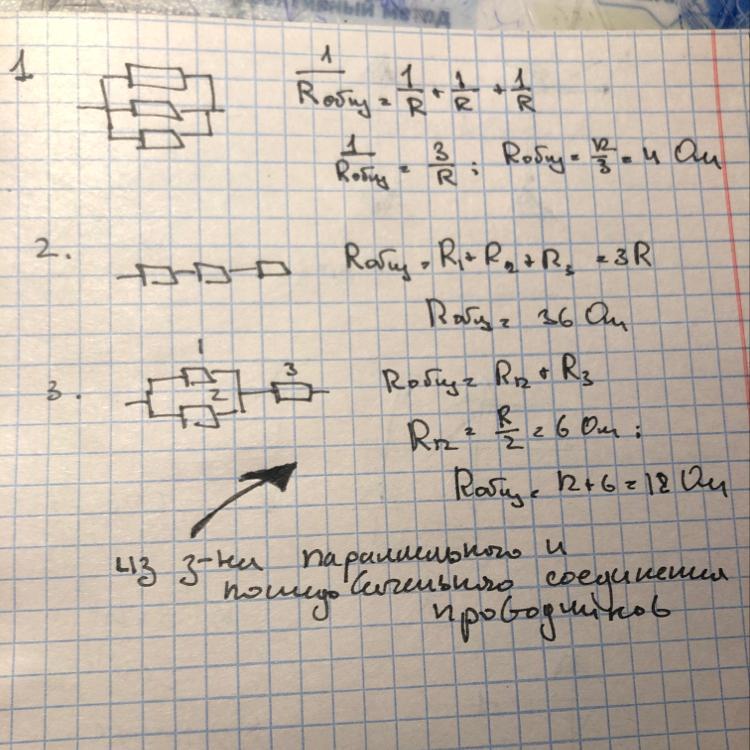 тивный метод
1
1/Rобщ = 1/R + 1/R + 1/R
1/Rобщ = 3/R ; Rобщ = 12/3 = 4 Ом
2.
Rобщ = R₁ + R₂ + R₃ = 3R
Rобщ = 36 Ом
3.
1
2
3
Rобщ = R₁₂ + R₃
R₁₂ = R/2 = 6 Ом ;
Rобщ = 12 + 6 = 18 Ом
из з-на параллельного и
последовательного соединения
проводников